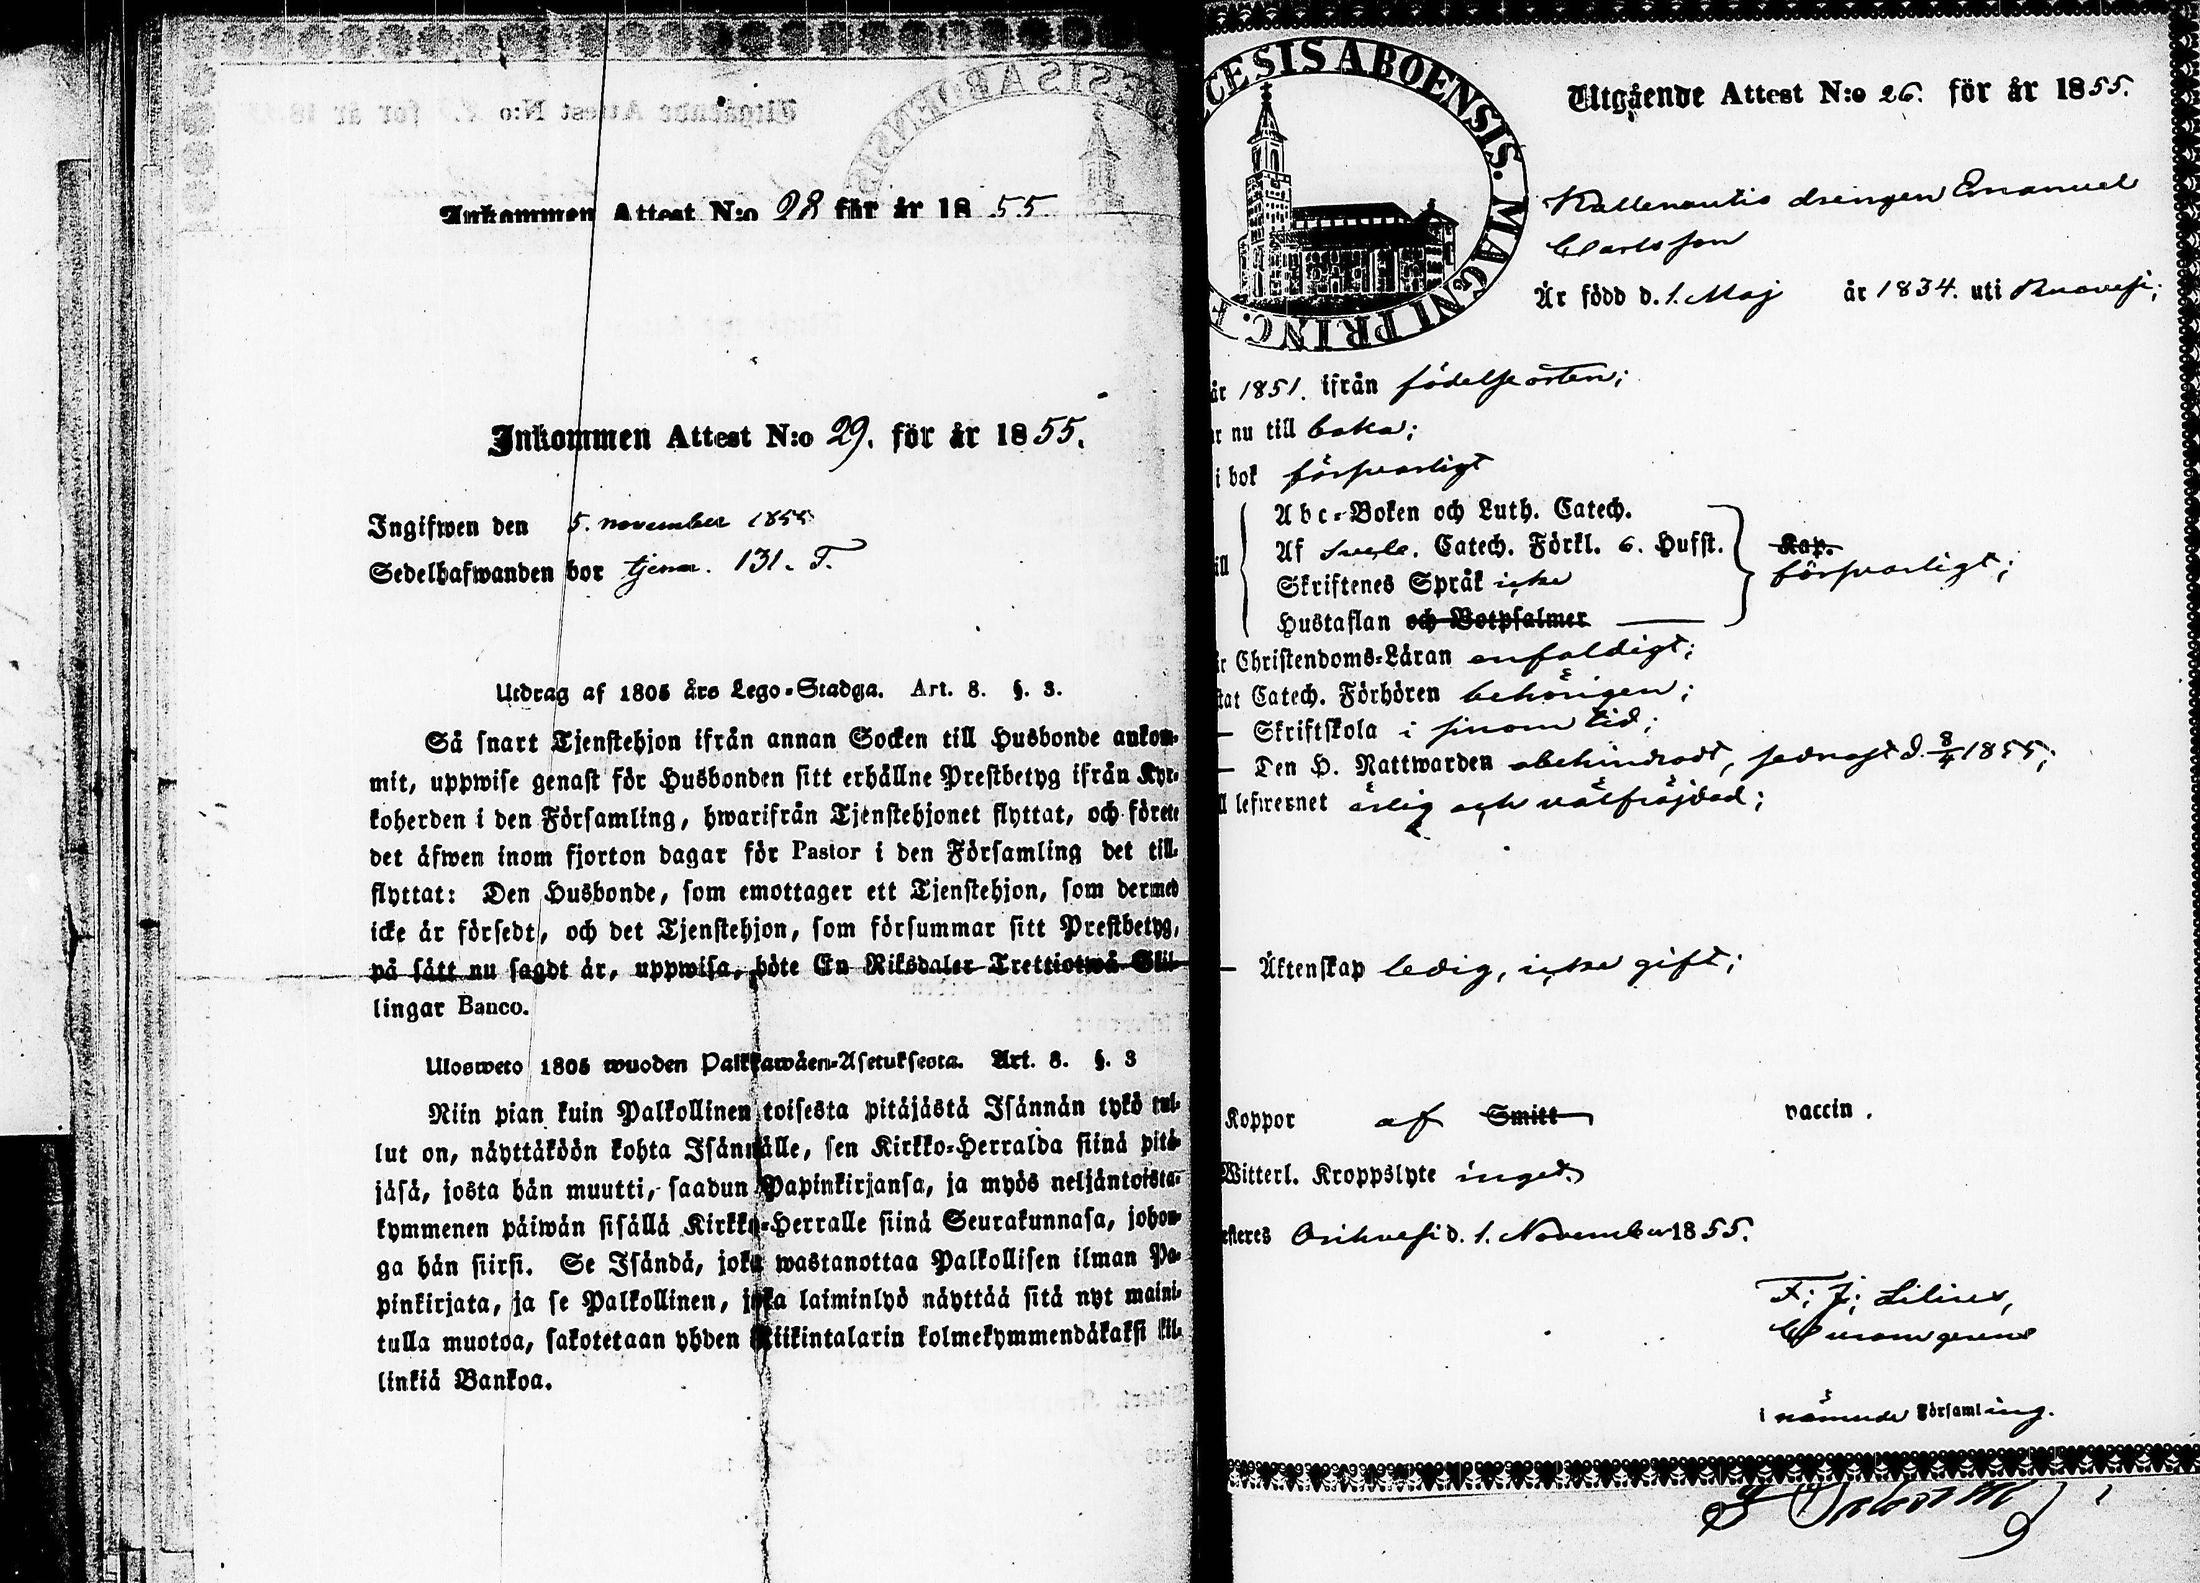 Inkommen Attest N:o 28 för år 1855.
Inkommen Attest N:o 29. för år 1855.
Ingifwen den 5. november 1855
Sedelhafwanden bor tjena. 131. T.
Utdrag af 1805 års Lego-Stadga. Art. 8. §. 3.
Så snart Tjenstehjon ifrån annan Socken till Husbonde ankom-
mit, uppwise genast för Husbonden sitt erhållne Prestbetyg ifrån Kyr-
koherden i den Församling, hwarifrån Tjenstehjonet flyttat, och förete
det äfwen inom fjorton dagar för Pastor i den Församling det till-
flyttat: Den Husbonde, som emottager ett Tjenstehjon, som dermed
icke är försedt, och det Tjenstehjon, som försummar sitt Prestbetyg,
på sätt nu sagdt är, uppwisa, böte En Riksdaler Trettiotwå Skil-
lingar Banco.
Ulosweto 1805 wuoden Palkkawäen-Asetuksesta. Art. 8. §. 3
Niin pian kuin Palkollinen toisesta pitäjästä Isännän tykö tul-
lut on, näyttäköön kohta Isännälle, sen Kirkko-Herralda siinä pitä-
jäsä, josta hän muutti, saadun Papinkirjansa, ja myös neljäntoista-
kymmenen päiwän sisällä Kirkko-Herralle siinä Seurakunnasa, johon-
ga hän siirsi. Se Isändä, joka wastanottaa Palkollisen ilman Pa-
pinkirjata, ja se Palkollinen, joka laiminlyö näyttää sitä nyt maini-
tulla muotoa, sakotetaan yhden Riikintalarin kolmekymmendäkaksi kil-
linkiä Bankoa.
CESIS ABOENSIS. MAGNI PRINC. F
Utgående Attest N:o 26. för år 1855.
drengen Emanuel
Carlsson
Är född d. 1. Maj år 1834. uti Ruovesi;
år 1851. ifrån födelseorten;
r nu till baka;
i bok försvarligt
Abc-Boken och Luth. Catech.
Af Svebe. Catech. Förkl. 6. Hufst. Kap.
ill försvarligt;
Skriftenes Språk icke
Hustaflan och Botpsalmer
r Christendoms-Läran enfaldigt;
tat Catech. Förhören behörigen;
— Skriftskola i sinom tid;
— Den H. Nattwarden obehindradt, sednast d. 8/4 1855;
l lefwernet ärlig och välfräjdad;
— Äktenskap ledig, icke gift;
Koppor af Smitt vaccin.
Witterl. Kroppslyte inget.
esteres Orihvesi d. 1. November 1855.
F. J. Lilius,
i nämnde Församling.